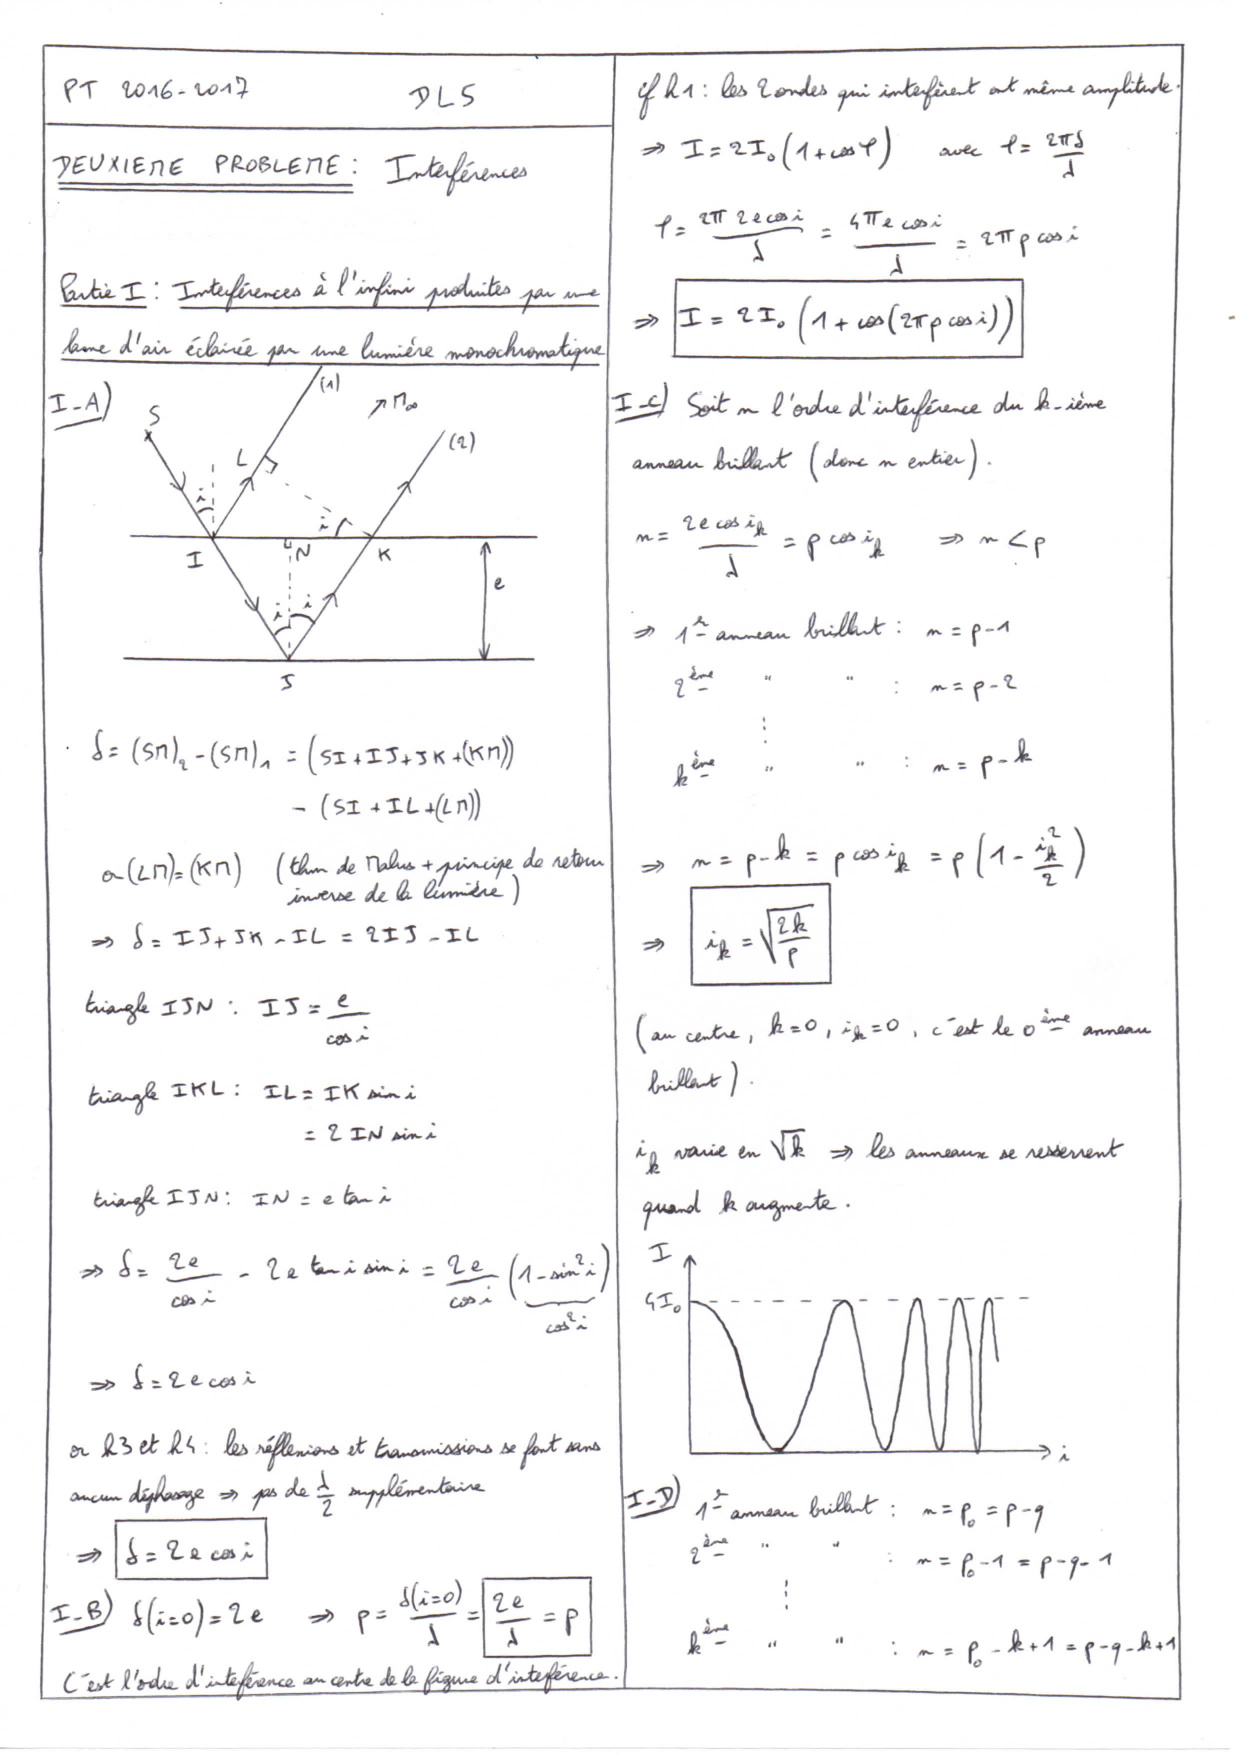 PT 2016-2017
DL5
DEUXIEME PROBLEME : Interférences
Partie I : Interférences à l'infini produites par une
lame d'air éclairée par une lumière monochromatique
I-A)
S
(1)
↗ M∞
(2)
L
i
i
I
N
K
i
i
e
J
δ = (SM)₂ - (SM)₁ = (SI + IJ + JK + (KM))
- (SI + IL + (LM))
or (LM) = (KM) (thm de Malus + principe de retour
inverse de la lumière)
⇒ δ = IJ + JK - IL = 2IJ - IL
triangle IJN : IJ = e / cos i
triangle IKL : IL = IK sin i
= 2 IN sin i
triangle IJN : IN = e tan i
⇒ δ = 2e / cos i - 2e tan i sin i = 2e / cos i (1 - sin² i)
cos² i
⇒ δ = 2e cos i
or h3 et h4 : les réflexions et transmissions se font sans
aucun déphasage ⇒ pas de λ/2 supplémentaire
⇒ δ = 2e cos i
I-B) δ(i=0) = 2e ⇒ p = δ(i=0) / λ = 2e / λ = p
C'est l'ordre d'inteférence au centre de la figure d'inteférence.
if h1 : les 2 ondes qui interfèrent ont même amplitude.
⇒ I = 2I₀ (1 + cos φ) avec φ = 2πδ / λ
φ = 2π 2e cos i / λ = 4πe cos i / λ = 2πp cos i
⇒ I = 2I₀ (1 + cos(2πp cos i))
I-C) Soit n l'ordre d'interférence du k-ième
anneau brillant (donc n entier).
n = 2e cos iₖ / λ = p cos iₖ ⇒ n < p
⇒ 1er anneau brillant : n = p - 1
2ème " " : n = p - 2
⋮
kème " " : n = p - k
⇒ n = p - k = p cos iₖ = p (1 - iₖ² / 2)
⇒ iₖ = √(2k / p)
(au centre, k = 0, iₖ = 0, c'est le 0ème anneau
brillant).
iₖ varie en √k ⇒ les anneaux se resserrent
quand k augmente.
I
4I₀
i
I-D) 1er anneau brillant : n = p₀ = p - q
2ème " " : n = p₀ - 1 = p - q - 1
⋮
kème " " : n = p₀ - k + 1 = p - q - k + 1